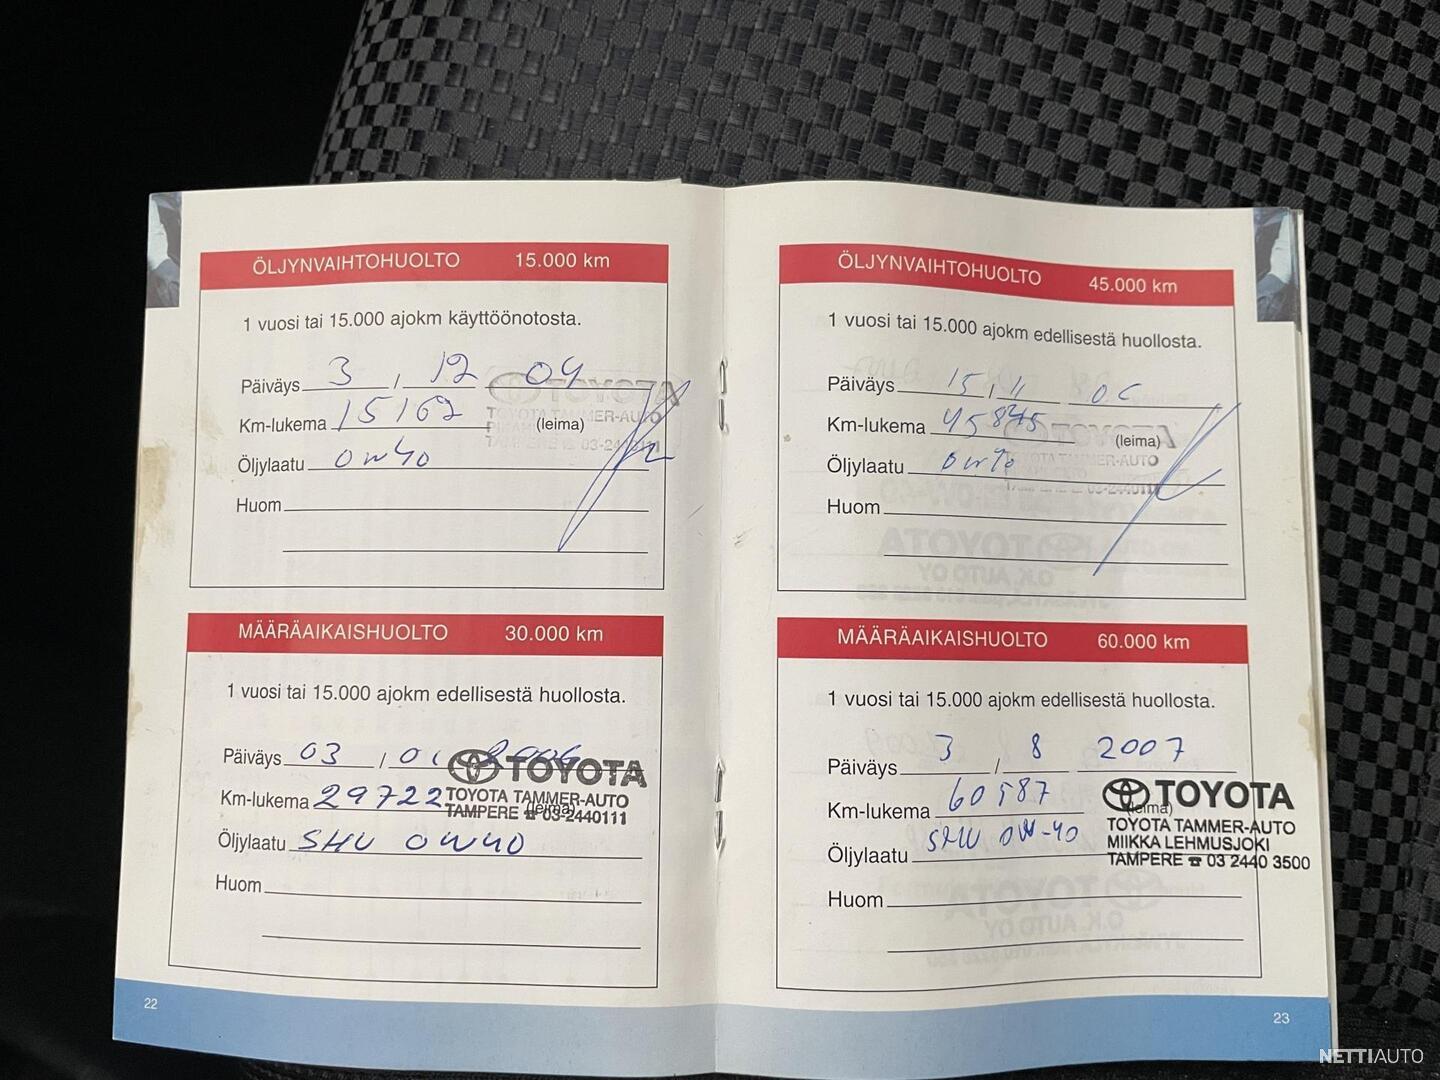 ÖLJYNVAIHTOHUOLTO 15.000 km
1 vuosi tai 15.000 ajokm käyttöönotosta.
Päiväys 3 / 12 04
TOYOTA
TOYOTA TAMMER-AUTO
Km-lukema 15162 (leima)
TAMPERE
Öljylaatu 0w40
Huom
MÄÄRÄAIKAISHUOLTO 30.000 km
1 vuosi tai 15.000 ajokm edellisestä huollosta.
Päiväys 03 / 01 2006
TOYOTA
Km-lukema 29722 (leima)
TOYOTA TAMMER-AUTO
TAMPERE ☎ 03-2440111
Öljylaatu SHU 0W40
Huom
22
ÖLJYNVAIHTOHUOLTO 45.000 km
1 vuosi tai 15.000 ajokm edellisestä huollosta.
Päiväys 15 / 11 06
Km-lukema 45875 (leima)
TOYOTA TAMMER-AUTO
Öljylaatu 0w40
03-2440111
Huom
MÄÄRÄAIKAISHUOLTO 60.000 km
1 vuosi tai 15.000 ajokm edellisestä huollosta.
Päiväys 3 / 8 2007
Km-lukema 60587 (leima)
TOYOTA
TOYOTA TAMMER-AUTO
MIIKKA LEHMUSJOKI
TAMPERE ☎ 03 2440 3500
Öljylaatu SHU 0W-40
Huom
23
NETTIAUTO